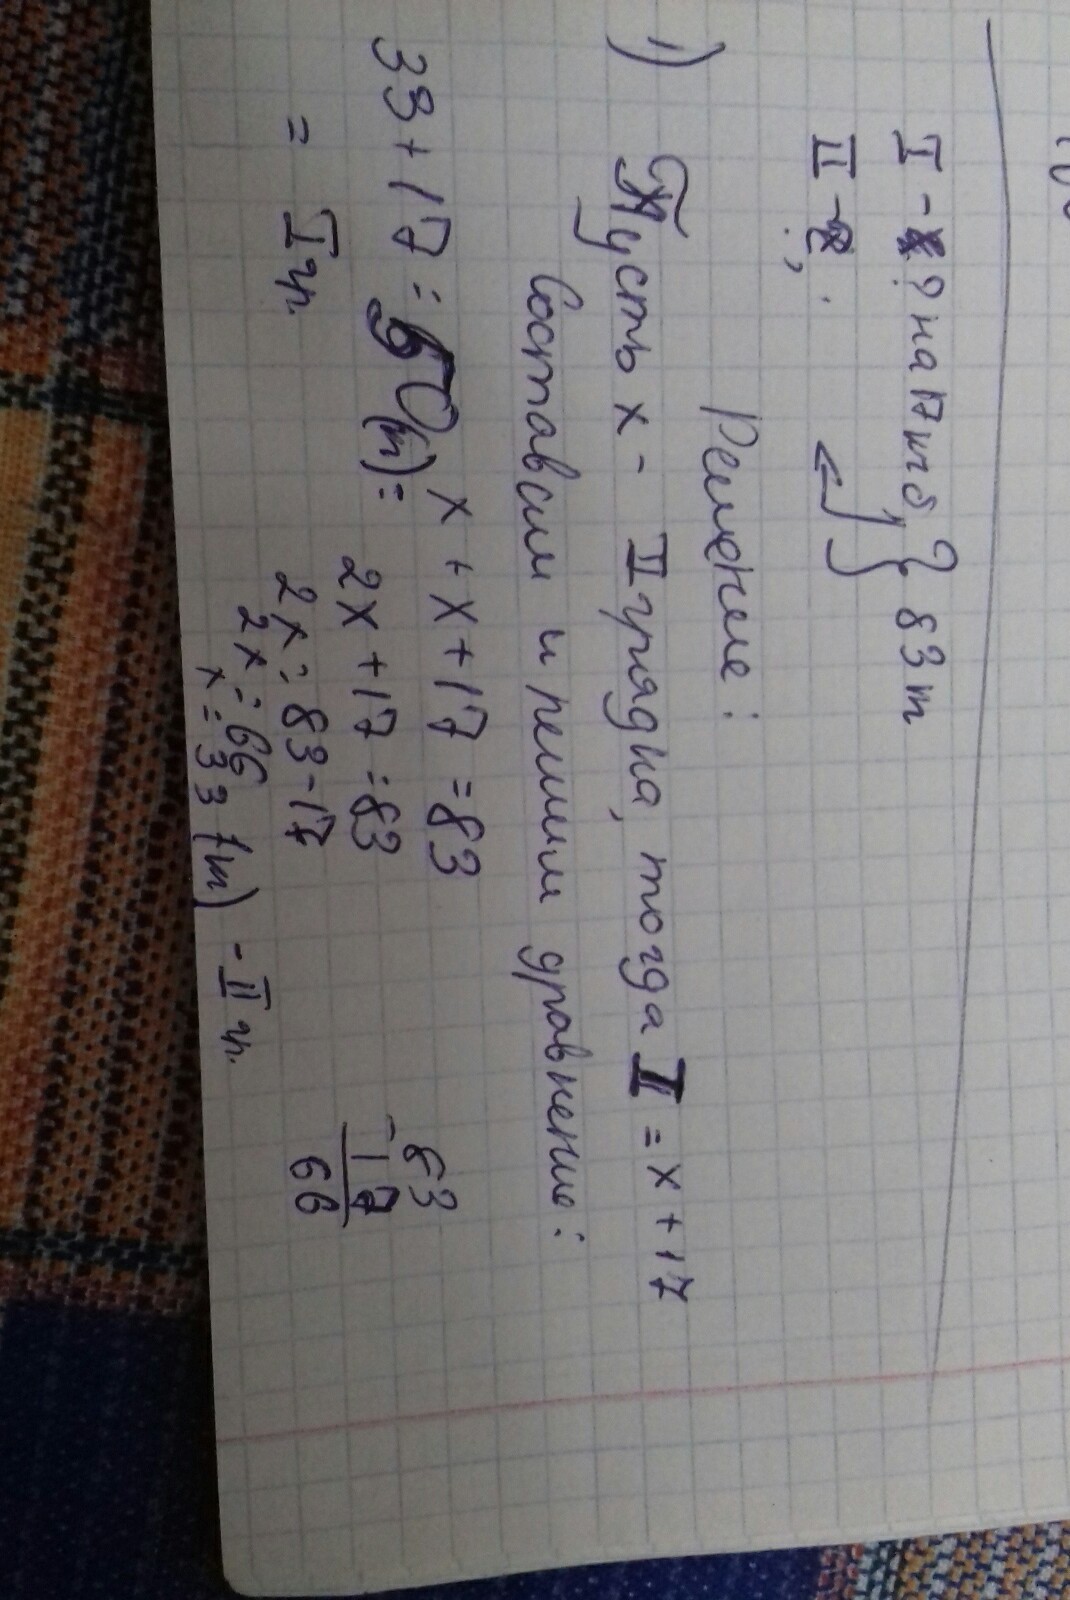 I - ? на 17 кг б, } 83 т
II - ?,
Решение:
1) Пусть x - II грядка, тогда I = x + 17
Составим и решим уравнение:
x + x + 17 = 83
2x + 17 = 83
2x = 83 - 17
2x = 66
x = 33 (т) - II гр.
33 + 17 = 50 (т) =
= I гр.
83
- 17
66